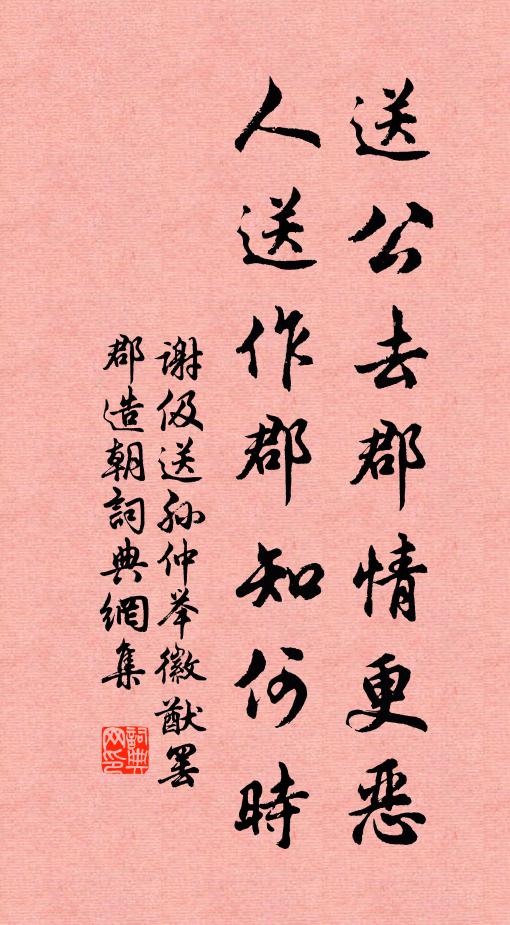 送公去郡情更惡
人送作郡知何時
谢伋送孙仲举徽猷罢
郡造朝詞典網集
詞典网印